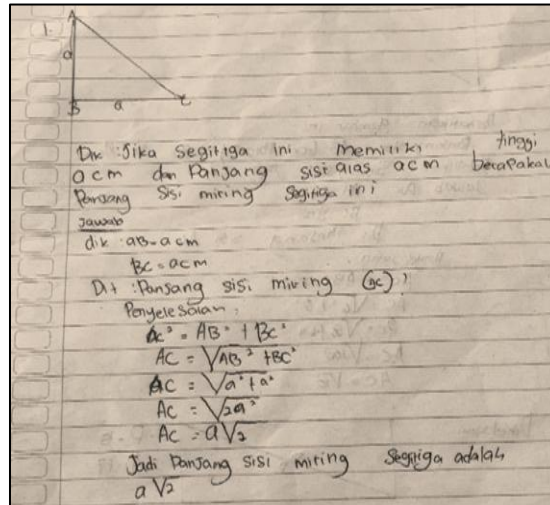 1.
A
a
B
a
C
Dik : Jika segitiga ini memiliki tinggi
a cm dan Panjang sisi alas a cm berapakah
Panjang sisi miring segitiga ini
Jawab
dik : aB = a cm
BC = a cm
Dit : Panjang sisi miring (ac) ?
Penyelesaian :
Ac² = AB² + Bc²
AC = √AB² + BC²
AC = √a² + a²
AC = √2a²
AC = a√2
Jadi Panjang sisi miring segitiga adalah
a√2